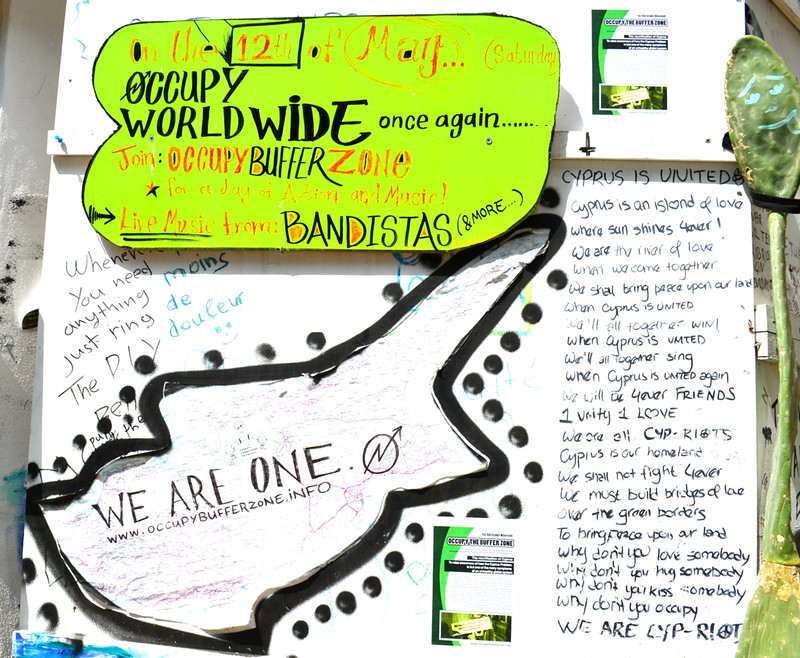 On the 12th of May... (Saturday
OCCUPY
WORLD WIDE once again.......
Join: OCCUPY BUFFER ZONE
* for a day of Action and Music!
Live Music from: BANDISTAS (& MORE...)
Whenever
You need
anything
just ring
The DIY
Bell
moins
de
douleur
WE ARE ONE.
WWW.OCCUPYBUFFERZONE.INFO
OCCUPY THE BUFFER ZONE
CYPRUS IS UNITED
Cyprus is an island of love
where sun shines 4ever!
We are the river of love
when we come together
We shall bring peace upon our land
when Cyprus is UNITED
We'll all together WIN!
when Cyprus is UNITED
We'll all together sing
when Cyprus is UNITED again
We will be 4ever FRIENDS
1 unity 1 LOVE
We are all CYP-RIOTS
Cyprus is our homeland
We shall not fight 4ever
We must build bridges of love
over the green borders
To bring peace upon our land
Why don't you love somebody
Why don't you hug somebody
Why don't you kiss somebody
Why don't you occupy
WE ARE CYP-RIOT
OCCUPY THE BUFFER ZONE